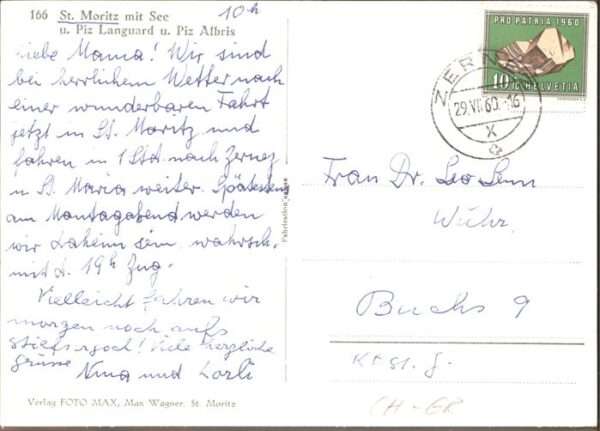 166 St. Moritz mit See
u. Piz Languard u. Piz Albris
10 h
Liebe Mama! Wir sind
bei herrlichem Wetter nach
einer wunderbaren Fahrt
jetzt in St. Moritz und
fahren in 1 Std. nach Zernez
u. St. Maria weiter. Spätestens
am Montagabend werden
wir daheim sein, wahrsch.
mit d. 19h Zug.
Vielleicht fahren wir
morgen noch aufs
Viele herzliche
Grüsse
Nina und
Verlag FOTO MAX, Max Wagner, St. Moritz
PRO PATRIA 1960
10 HELVETIA
ZERNEZ
29.VII.60.-16
X
Frau Dr. Leo Senn
Buchs 9
Kt. St. G.
CH-GR